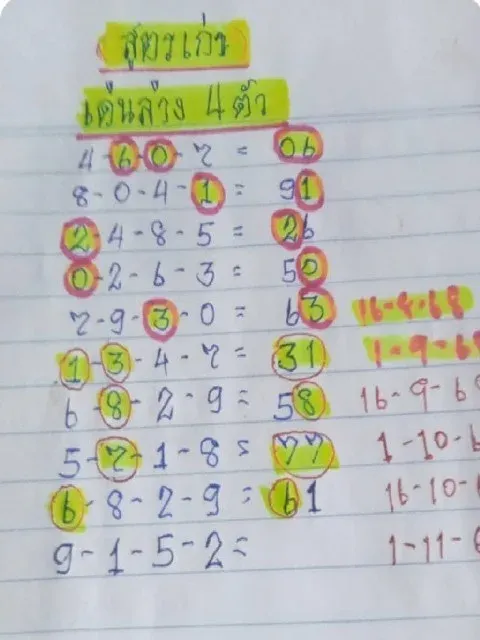 สูตรเก่า
เด่นล่าง 4 ตัว
4-6-0-7 = 06
8-0-4-1 = 91
2-4-8-5 = 26
0-2-6-3 = 50
7-9-3-0 = 63 16-8-68
1-3-4-7 = 31 1-9-68
6-8-2-9 = 58 16-9-68
5-7-1-8 = 77 1-10-6
6-8-2-9 = 61 16-10-
9-1-5-2 = 1-11-6